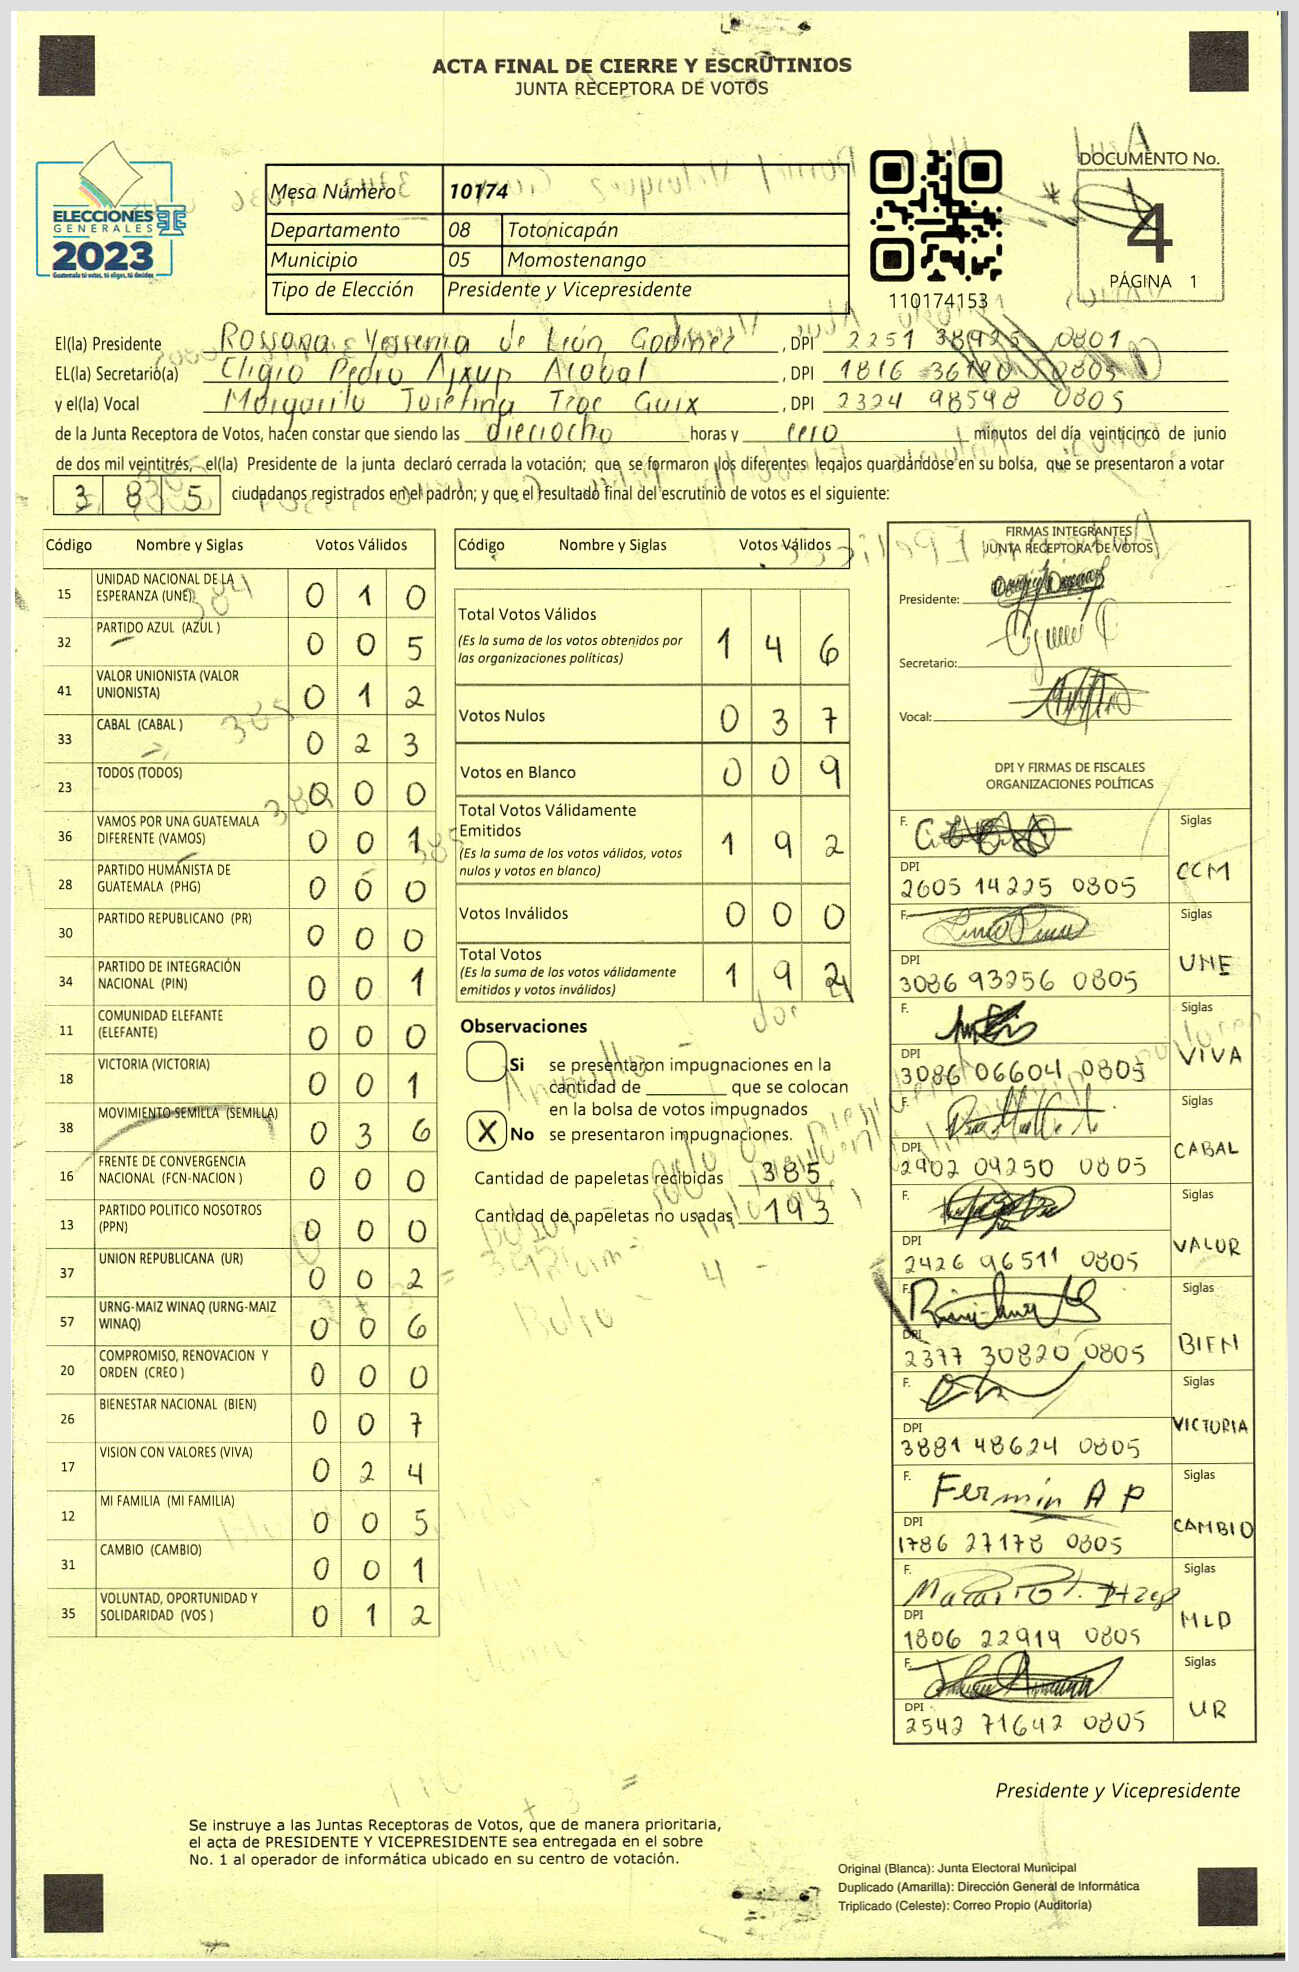 ACTA FINAL DE CIERRE Y ESCRUTINIOS
JUNTA RECEPTORA DE VOTOS
ELECCIONES
GENERALES
2023
Guatemala tú votas, tú eliges, tú decides
Mesa Número 10174
Departamento 08 Totonicapán
Municipio 05 Momostenango
Tipo de Elección Presidente y Vicepresidente
110174153
DOCUMENTO No.
4
PÁGINA 1
El(la) Presidente Rossana Yessenia de León Godinez , DPI 2251 38925 0801
EL(la) Secretario(a) Eligio Pedro Ajxup Acabal , DPI 1816 36190 0805
y el(la) Vocal Margarita Josefina Tzoc Guix , DPI 2324 98598 0805
de la Junta Receptora de Votos, hacen constar que siendo las dieciocho horas y cero minutos del día veinticinco de junio
de dos mil veintitrés, el(la) Presidente de la junta declaró cerrada la votación; que se formaron los diferentes legajos guardándose en su bolsa, que se presentaron a votar
385 ciudadanos registrados en el padrón; y que el resultado final del escrutinio de votos es el siguiente:
Código Nombre y Siglas Votos Válidos
15 UNIDAD NACIONAL DE LA ESPERANZA (UNE) 0 1 0
32 PARTIDO AZUL (AZUL ) 0 0 5
41 VALOR UNIONISTA (VALOR UNIONISTA) 0 1 2
33 CABAL (CABAL ) 0 2 3
23 TODOS (TODOS) 0 0 0
36 VAMOS POR UNA GUATEMALA DIFERENTE (VAMOS) 0 0 1
28 PARTIDO HUMANISTA DE GUATEMALA (PHG) 0 0 0
30 PARTIDO REPUBLICANO (PR) 0 0 0
34 PARTIDO DE INTEGRACIÓN NACIONAL (PIN) 0 0 1
11 COMUNIDAD ELEFANTE (ELEFANTE) 0 0 0
18 VICTORIA (VICTORIA) 0 0 1
38 MOVIMIENTO SEMILLA (SEMILLA) 0 3 6
16 FRENTE DE CONVERGENCIA NACIONAL (FCN-NACION ) 0 0 0
13 PARTIDO POLITICO NOSOTROS (PPN) 0 0 0
37 UNION REPUBLICANA (UR) 0 0 2
57 URNG-MAIZ WINAQ (URNG-MAIZ WINAQ) 0 0 6
20 COMPROMISO, RENOVACION Y ORDEN (CREO ) 0 0 0
26 BIENESTAR NACIONAL (BIEN) 0 0 7
17 VISION CON VALORES (VIVA) 0 2 4
12 MI FAMILIA (MI FAMILIA) 0 0 5
31 CAMBIO (CAMBIO) 0 0 1
35 VOLUNTAD, OPORTUNIDAD Y SOLIDARIDAD (VOS ) 0 1 2
Código Nombre y Siglas Votos Válidos
Total Votos Válidos 1 4 6
(Es la suma de los votos obtenidos por
las organizaciones políticas)
Votos Nulos 0 3 7
Votos en Blanco 0 0 9
Total Votos Válidamente
Emitidos 1 9 2
(Es la suma de los votos válidos, votos
nulos y votos en blanco)
Votos Inválidos 0 0 0
Total Votos 1 9 2
(Es la suma de los votos válidamente
emitidos y votos inválidos)
Observaciones
Si se presentaron impugnaciones en la
cantidad de ________ que se colocan
en la bolsa de votos impugnados
X No se presentaron impugnaciones.
Cantidad de papeletas recibidas 385
Cantidad de papeletas no usadas 193
FIRMAS INTEGRANTES
JUNTA RECEPTORA DE VOTOS
Presidente:
Secretario:
Vocal:
DPI Y FIRMAS DE FISCALES
ORGANIZACIONES POLÍTICAS
F. Siglas
DPI 2605 14225 0805 CCM
F. Siglas
DPI 3086 93256 0805 UNE
F. Siglas
DPI 3086 06604 0805 VIVA
F. Siglas
DPI 2902 09250 0805 CABAL
F. Siglas
DPI 2426 96511 0805 VALOR
F. Siglas
DPI 2377 30820 0805 BIEN
F. Siglas
DPI 3881 48624 0805 VICTORIA
F. Fermín A P Siglas
DPI 1786 27178 0805 CAMBIO
F. Siglas
DPI 1806 22919 0805 MLD
F. Siglas
DPI 2542 71642 0805 UR
Presidente y Vicepresidente
Se instruye a las Juntas Receptoras de Votos, que de manera prioritaria,
el acta de PRESIDENTE Y VICEPRESIDENTE sea entregada en el sobre
No. 1 al operador de informática ubicado en su centro de votación.
Original (Blanca): Junta Electoral Municipal
Duplicado (Amarilla): Dirección General de Informática
Triplicado (Celeste): Correo Propio (Auditoría)